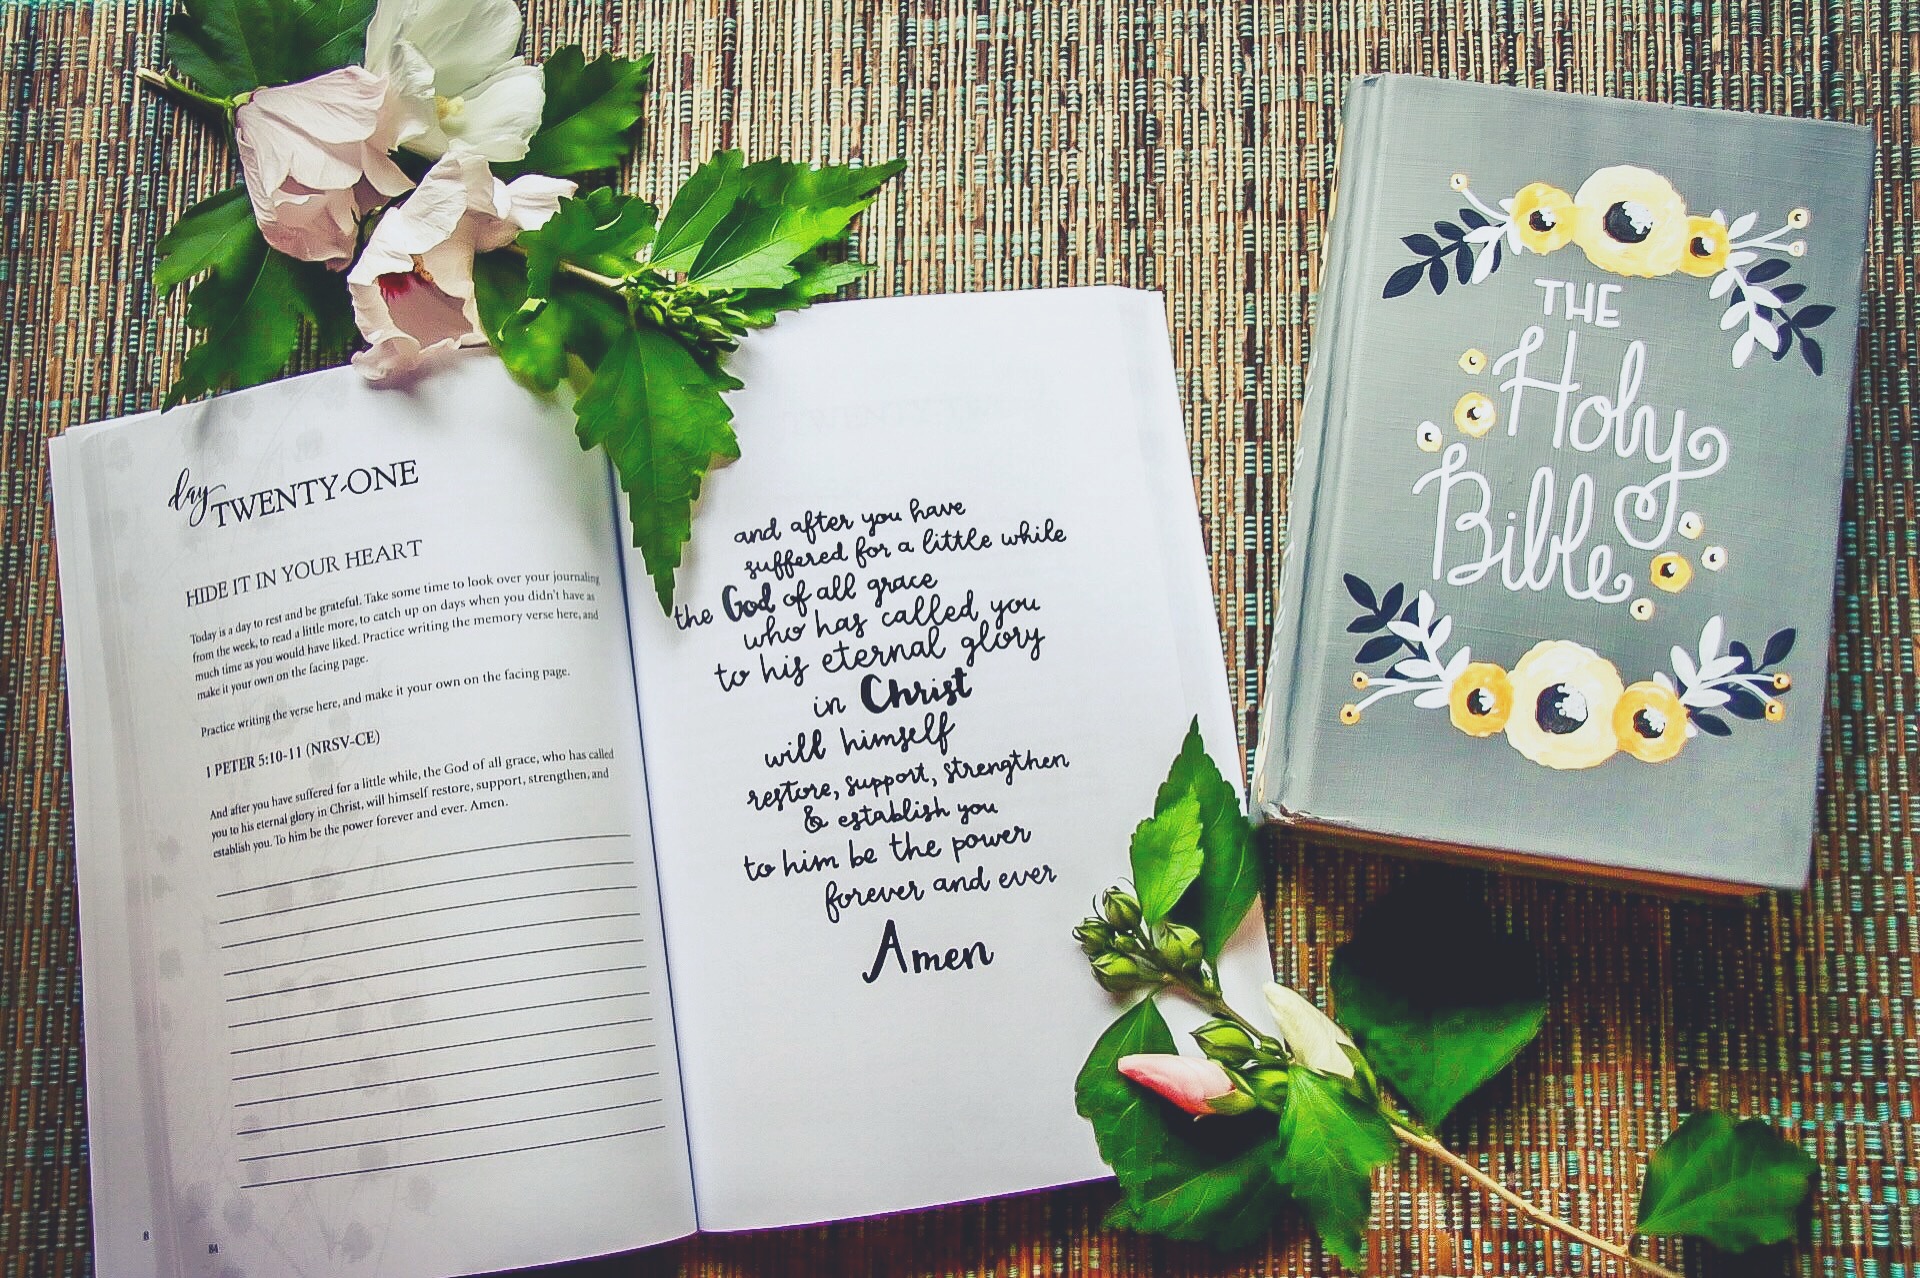 day TWENTY-ONE
HIDE IT IN YOUR HEART
Today is a day to rest and be grateful. Take some time to look over your journaling
from the week, to read a little more, to catch up on days when you didn't have as
much time as you would have liked. Practice writing the memory verse here, and
make it your own on the facing page.
Practice writing the verse here, and make it your own on the facing page.
1 PETER 5:10-11 (NRSV-CE)
And after you have suffered for a little while, the God of all grace, who has called
you to his eternal glory in Christ, will himself restore, support, strengthen, and
establish you. To him be the power forever and ever. Amen.
8
84
and after you have
suffered for a little while
the God of all grace
who has called you
to his eternal glory
in Christ
will himself
restore, support, strengthen
& establish you
to him be the power
forever and ever
Amen
THE
Holy
Bible